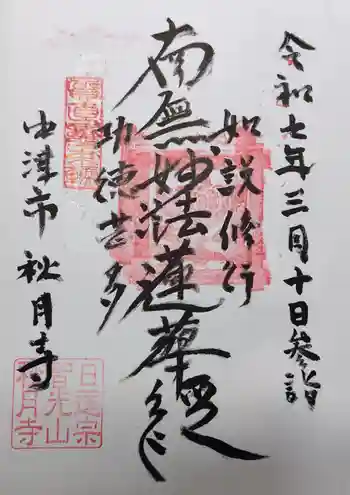 令和七年三月十日参詣
如説修行
南無妙法蓮華経
功徳甚多
中津市 秋月寺
日蓮宗
智光山
秋月寺